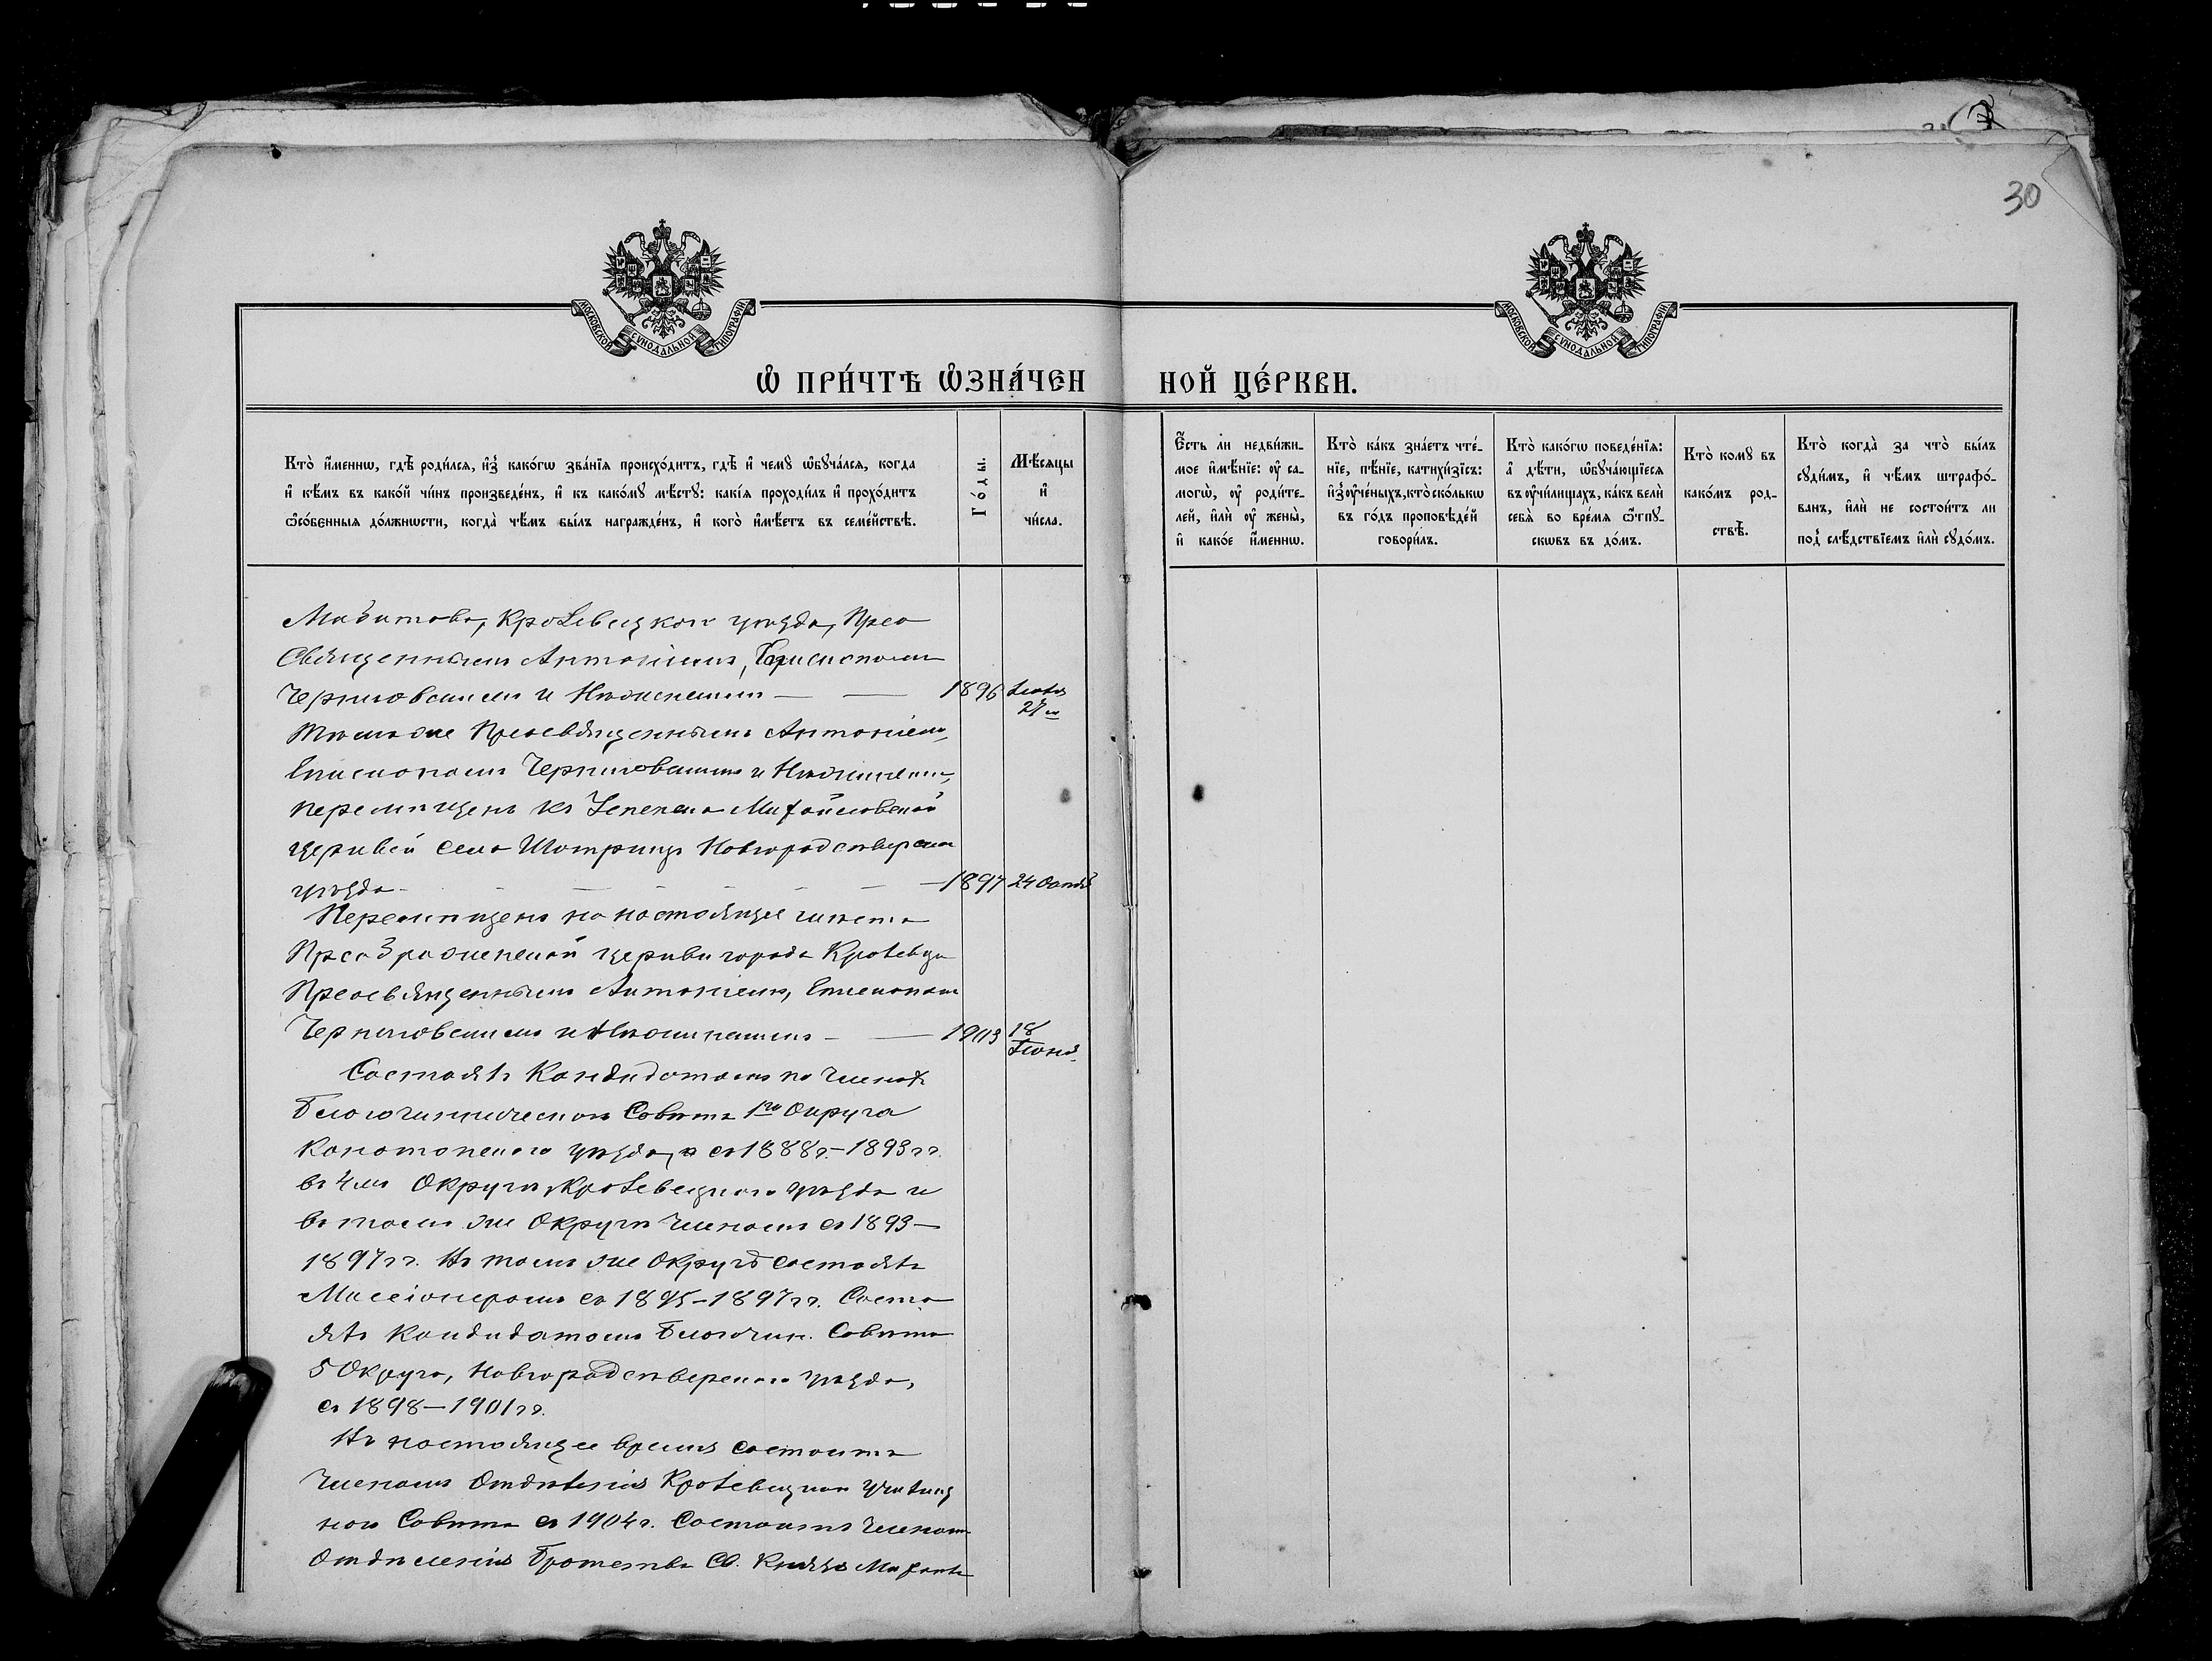 30
МОСКОВСКОЙ СѴНОДАЛЬНОЙ ТИПОГРАФІИ
МОСКОВСКОЙ СѴНОДАЛЬНОЙ ТИПОГРАФІИ
Ѽ ПРИ́ЧТѢ Ѡ҆ЗНА́ЧЕННОЙ ЦЕ́РКВИ.
Кто̀ и҆́меннѡ, гдѣ̀ роди́лсѧ, и҆з̾ како́гѡ зва́нїѧ происхо́дитъ, гдѣ̀ и҆ чемꙋ̀ ѡ҆бꙋча́лсѧ, когда
и҆ кѣ́мъ въ како́й чи́нъ произведе́нъ, и҆ къ како́мꙋ мѣ́стꙋ: какі́ѧ проходи́лъ и҆ прохо́дитъ
ѻ҆со́бенныѧ до́лжнѡсти, когда̀ чѣ́мъ бы́лъ награжде́нъ, и҆ кого̀ и҆мѣ́етъ въ семе́йствѣ.
Го́ды.
Мѣ́сѧцы
и҆
чи́сла.
Є҆́сть ли недви́жи-
мое и҆мѣ́нїе: ᲂу҆ са-
могѡ̀, ᲂу҆ роди́те-
лей, и҆лѝ ᲂу҆ жены̀,
и҆ како́е и҆́меннѡ.
Кто̀ ка́къ зна́етъ чте́-
нїе, пѣ́нїе, катихи́зїсъ:
и҆з̾ ᲂу҆че́ныхъ, кто̀ ско́лькѡ
въ го́дъ проповѣ́дей
говори́лъ.
Кто̀ како́гѡ поведе́нїѧ:
а҆ дѣ́ти, ѡ҆бꙋча́ющїесѧ
въ ᲂу҆чи́лищахъ, ка́къ велѝ
себѧ̀ во вре́мѧ ѿпꙋ-
скѡвъ въ до́мъ.
Кто̀ комꙋ̀ въ
како́мъ род-
ствѣ̀.
Кто̀ когда̀ за что̀ бы́лъ
сꙋди́мъ, и҆ чѣ́мъ штрафо́-
ванъ, и҆лѝ не состои́тъ ли
под̾ слѣ́дствїемъ и҆лѝ сꙋдо́мъ.
Кролевецкаго уѣзда, Прео
священнымъ Антоніемъ, Епископомъ
Черниговскимъ и Нѣжинскимъ — — 1896
27го
Тѣмъ же Преосвященнымъ Антоніемъ,
Епископомъ Черниговскимъ и Нѣжинскимъ,
перемѣщенъ къ Михайловской
церкви села Новгородсѣверскаго
уѣзда — 1897 24
Перемѣщенъ на настоящее мѣсто
Преображенской церкви города Кролевца
Преосвященнымъ Антоніемъ, Епископомъ
Черниговскимъ и Нѣжинскимъ — 1903 18
Состоялъ Кандидатомъ по Членѣ
Благочинническаго Совѣта 1го Округа
Конотопскаго уѣзда, съ 1888г.–1893гг.
въ 4мъ Округѣ, Кролевецкаго уѣзда и
въ томъ же Округѣ Членомъ съ 1893–
1897гг. Въ томъ же Округѣ состоялъ
Миссіонеромъ съ 1895–1897гг. Состо
ялъ Кандидатомъ Благочин. Совѣта
5 Округа, Новгородсѣверскаго уѣзда,
съ 1898–1901гг.
Въ настоящее время состоитъ
Членомъ Отдѣленія Кролевецкаго Училищ
наго Совѣта съ 1904г. Состоитъ Членомъ
Отдѣленія Братства Св. Князя Михаила